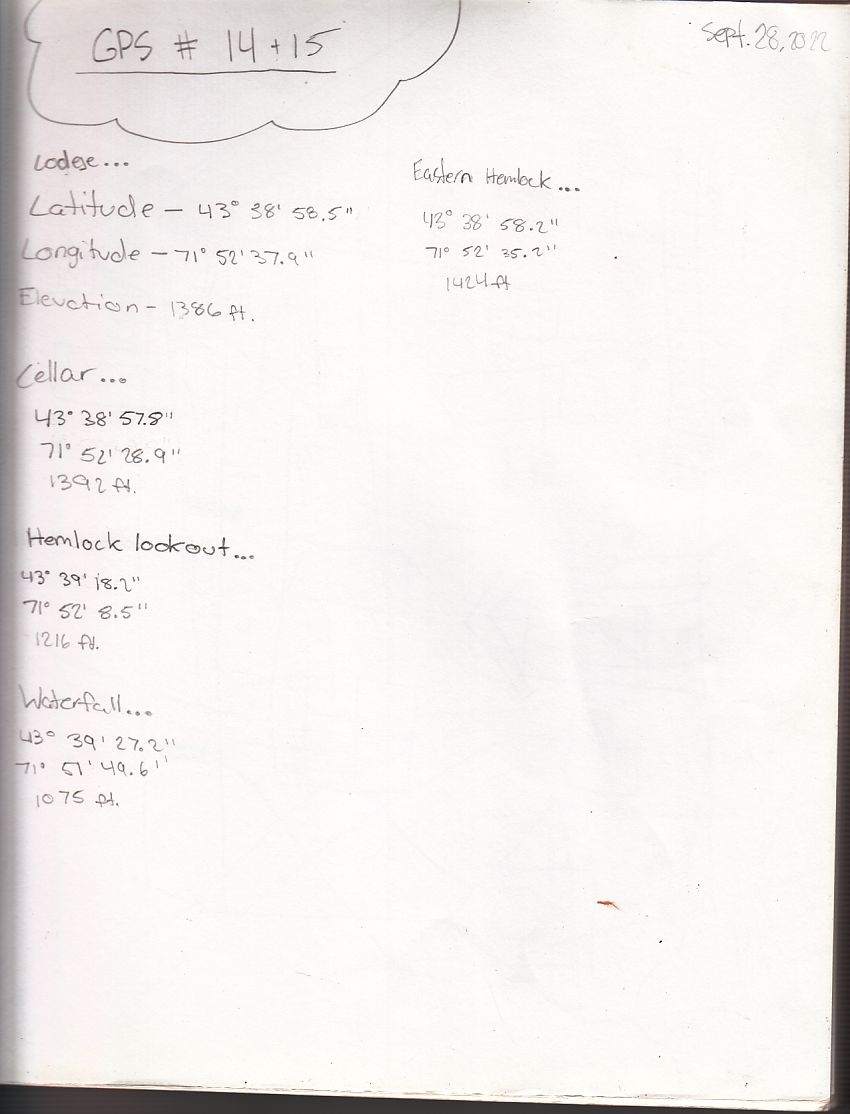 GPS # 14 + 15
Sept. 28, 2022
Lodge...
Latitude - 43° 38' 58.5"
Longitude - 71° 52' 37.9"
Elevation - 1386 ft.
Cellar...
43° 38' 57.8"
71° 52' 28.9"
1392 ft.
Hemlock lookout...
43° 39' 18.2"
71° 52' 8.5"
1216 ft.
Waterfall...
43° 39' 27.2"
71° 51' 49.6"
1075 ft.
Eastern Hemlock...
43° 38' 58.2"
71° 52' 35.2"
1424 ft